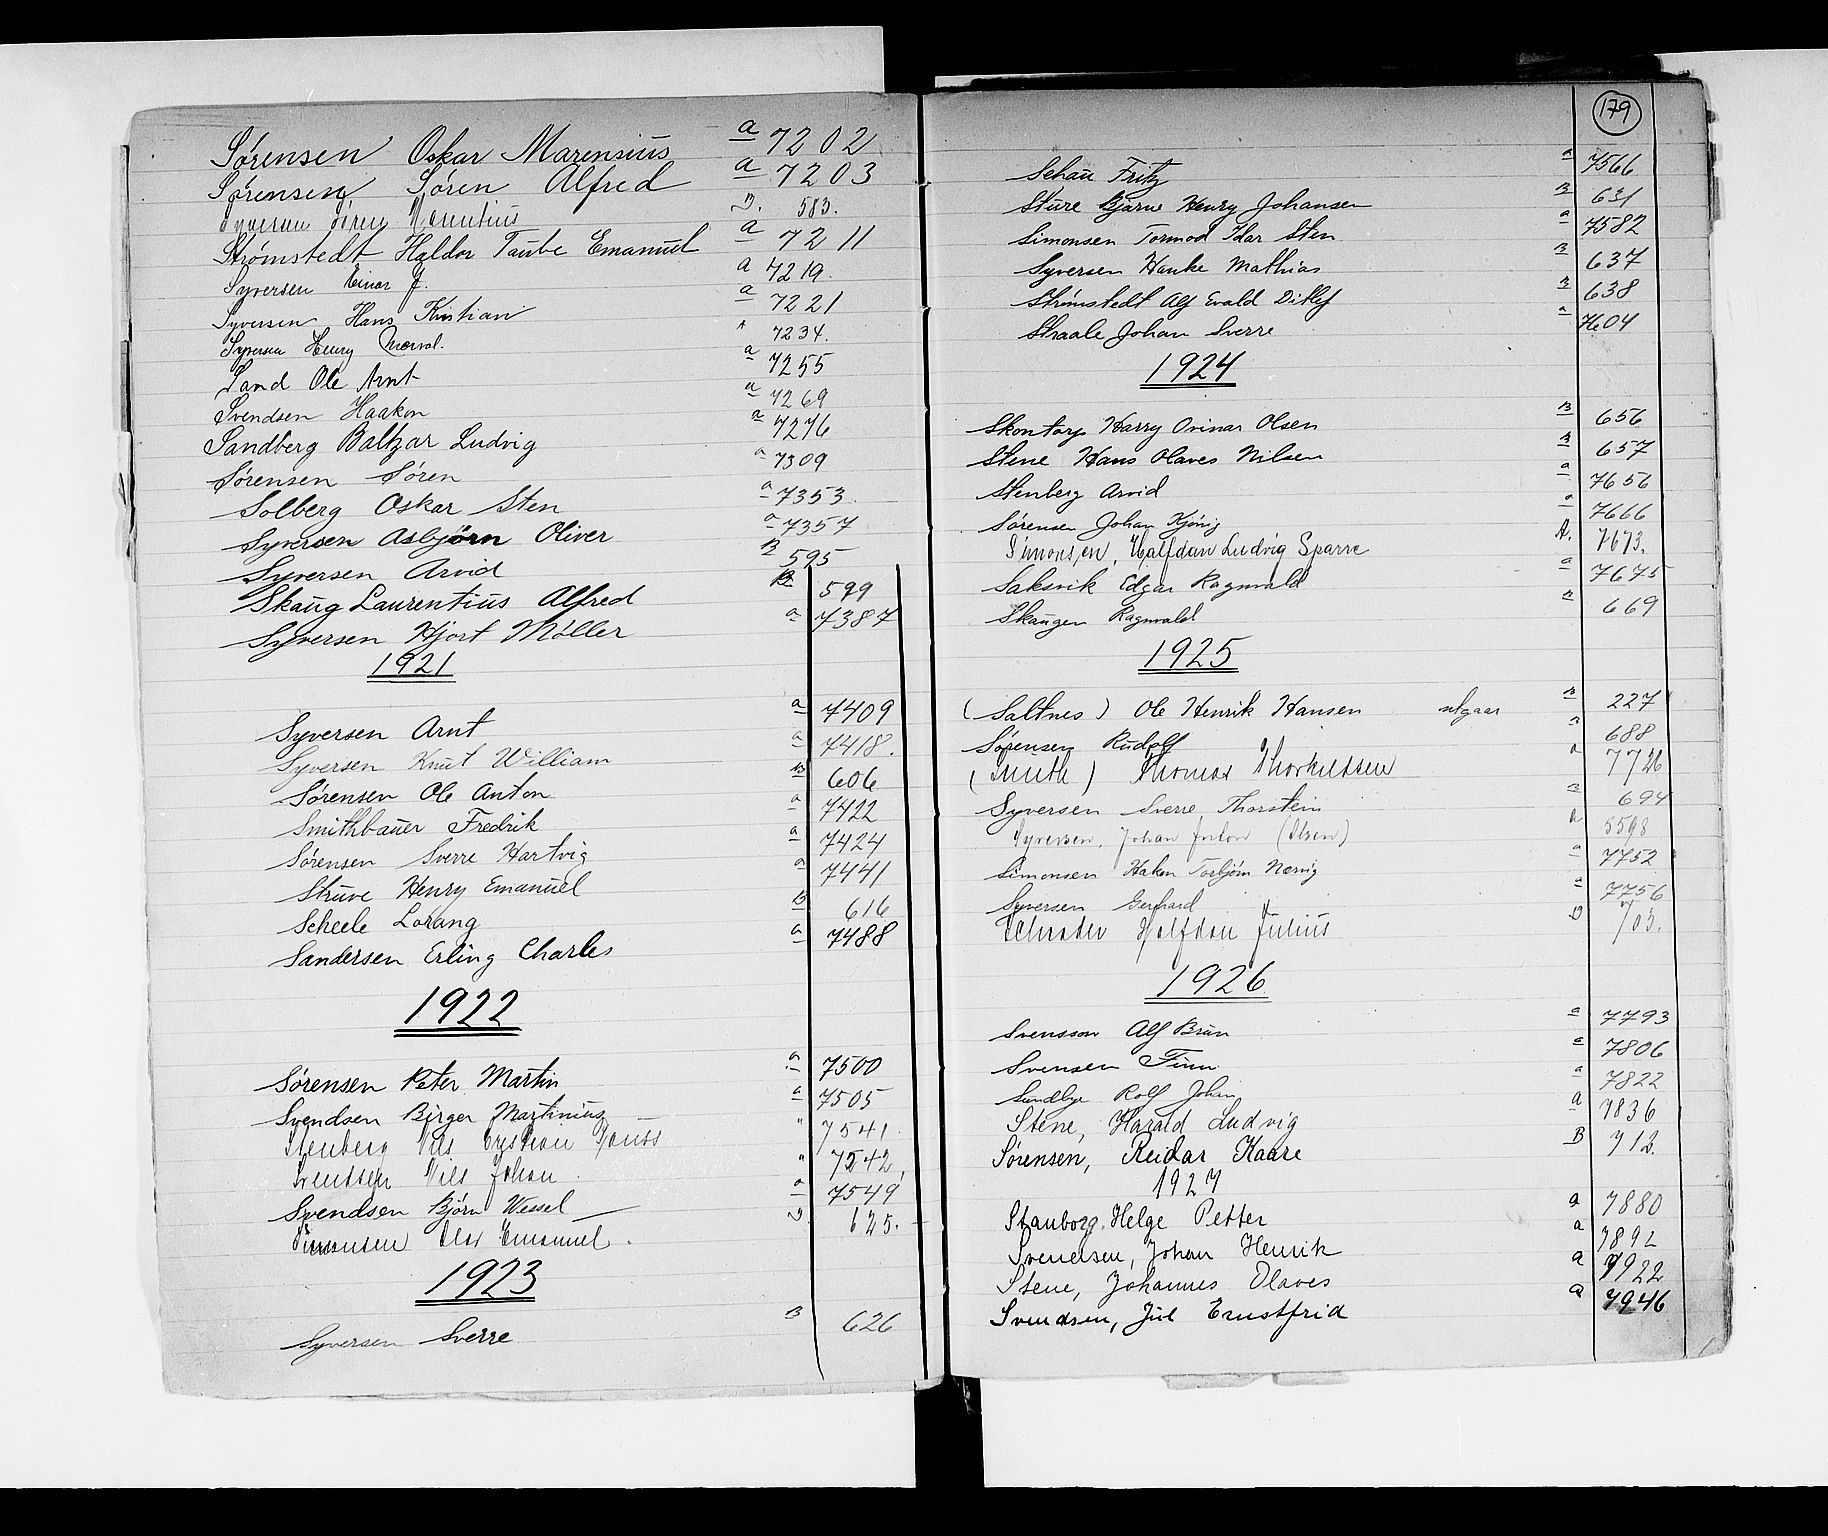 Sørensen Oskar Marensius a 7202
Sørensen Søren Alfred a 7203
Syversen Søren Morentius B. 583.
Strømstedt Haldor Taube Emanuel a 7211
Syversen Einar J. a 7219.
Syversen Hans Kristian a 7221
Syversen Henry Thorval. a 7234.
Sand Ole Arnt a 7255
Svendsen Haakon a 7269
Sandberg Baltzar Ludvig a 7276
Sørensen Søren a 7309
Solberg Oskar Sten a 7353.
Syversen Asbjørn Oliver a 7357
Syversen Arvid B 595
Skaug Laurentius Alfred B. 599
Syversen Hjort Møller a 7387
1921
Syversen Arnt a 7409
Syversen Knut William a 7418.
Sørensen Ole Anton B 606
Smithbauer Fredrik a 7422
Sørensen Sverre Hartvig a 7424
Struve Henry Emanuel a 7441
Scheele Lorang B 616
Sandersen Erling Charles a 7488
1922
Sørensen Peter Martin a 7500
Svendsen Birger Martinius a 7505
Stenberg Nils Kristian " 7541.
Svendsen Nils Johan. " 7542,
Svendsen Bjørn Wessel a 7549
Simonsen Olaf Emanuel. B 625.
1923
Syversen Sverre B 626
179
Schau Fritz a 7566
Sture Bjarne Henry Johansen B 631
Simonsen Tormod Idar Sten a 7582
Syversen Hauke Mathias B 637
Strømstedt Alf Evald Ditlef B 638
Straale Johan Sverre a 7604
1924
Skontorp Harry Orinar Olsen B 656
Stene Hans Olaves Nilsen B 657
Stenberg Arvid a 7656
Sørensen Johan Kjönig a 7666
Simonsen, Halfdan Ludvig Sparre A. 7673.
Saksvik Edgar Ragnvald a 7675
Skaugen Ragnvald B 669
1925
(Saltnes) Ole Henrik Hansen utgaar B 227
Sørensen Rudolf B 688
(Smith) Thomas Thorkildsen a 7726
Syversen Sverre Thorstein B 694
Syversen, Johan Anton (Olsen) a 5598
Simonsen Haken Torbjørn Nærvig a 7752
Syversen Gerhard a 7756
Schrøder Halfdan Julius B 703.
1926
Svensson Alf Brun a 7793
Svensen Finn a 7806
Sundbye Rolf Johan a 7822
Stene, Harald Ludvig a 7836
Sørensen, Reidar Kaare B 712.
1927
Stauborg, Helge Petter a 7880
Svendsen, Johan Henrik a 7892
Stene, Johannes Olaves a 7922
Svendsen, Jul Ernstfrid a 7946